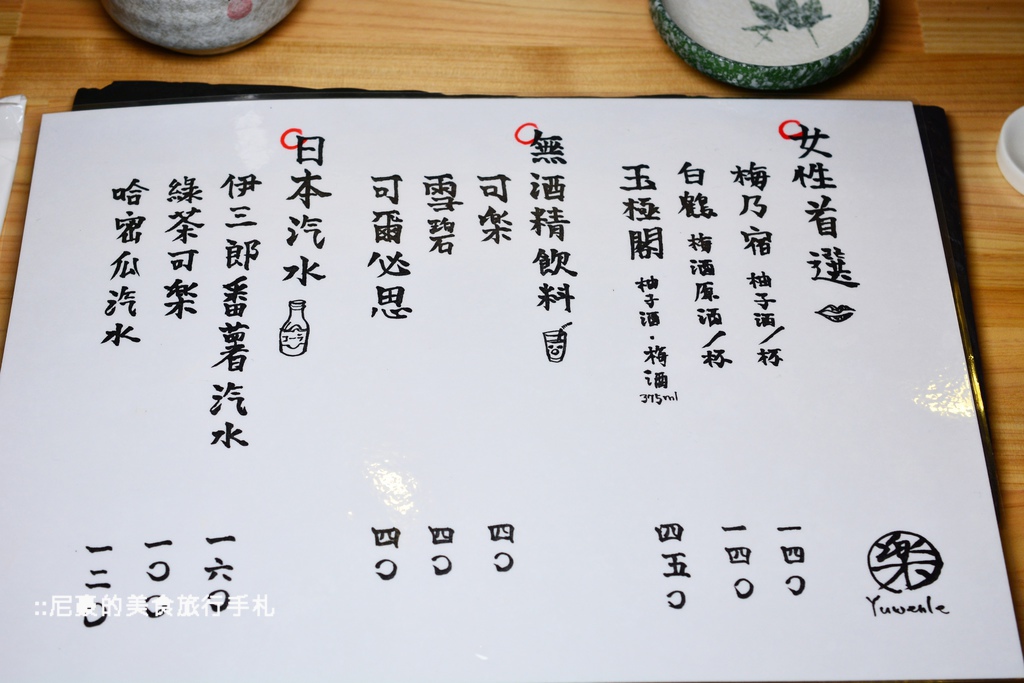 女性首選
梅乃宿 柚子酒/杯 一四〇
白鶴 梅酒原酒/杯 一四〇
玉極閣 柚子酒·梅酒 375ml 四五〇
無酒精飲料
可樂 四〇
雪碧 四〇
可爾必思 四〇
日本汽水
コーラ
伊三郎番薯汽水 一六〇
綠茶可樂 一〇〇
哈密瓜汽水 一二〇
樂
Yuwenle
::尼豪的美食旅行手札